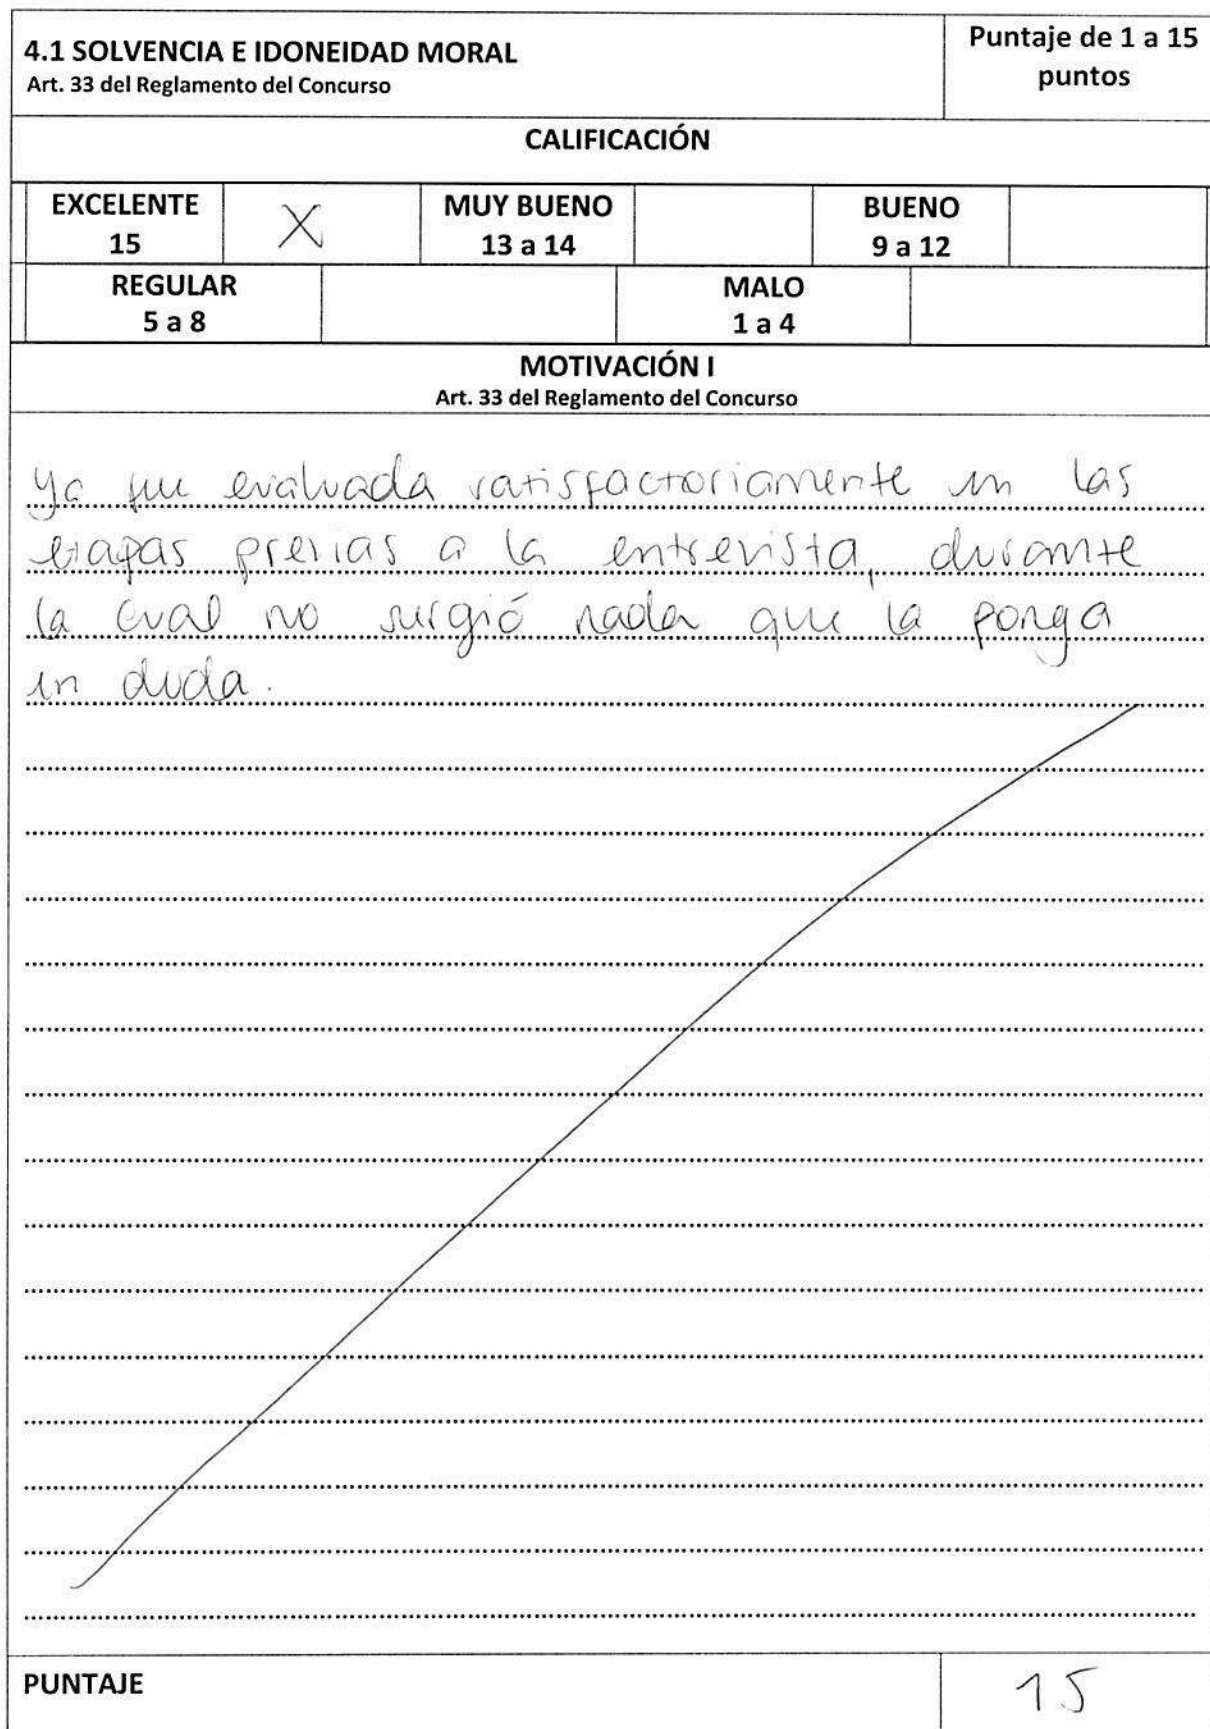 4.1 SOLVENCIA E IDONEIDAD MORAL
Art. 33 del Reglamento del Concurso
Puntaje de 1 a 15
puntos
CALIFICACIÓN
EXCELENTE
15
X
MUY BUENO
13 a 14
BUENO
9 a 12
REGULAR
5 a 8
MALO
1 a 4
MOTIVACIÓN I
Art. 33 del Reglamento del Concurso
Ya fue evaluada satisfactoriamente en las
etapas previas a la entrevista, durante
la cual no surgió nada que la ponga
en duda.
PUNTAJE
15